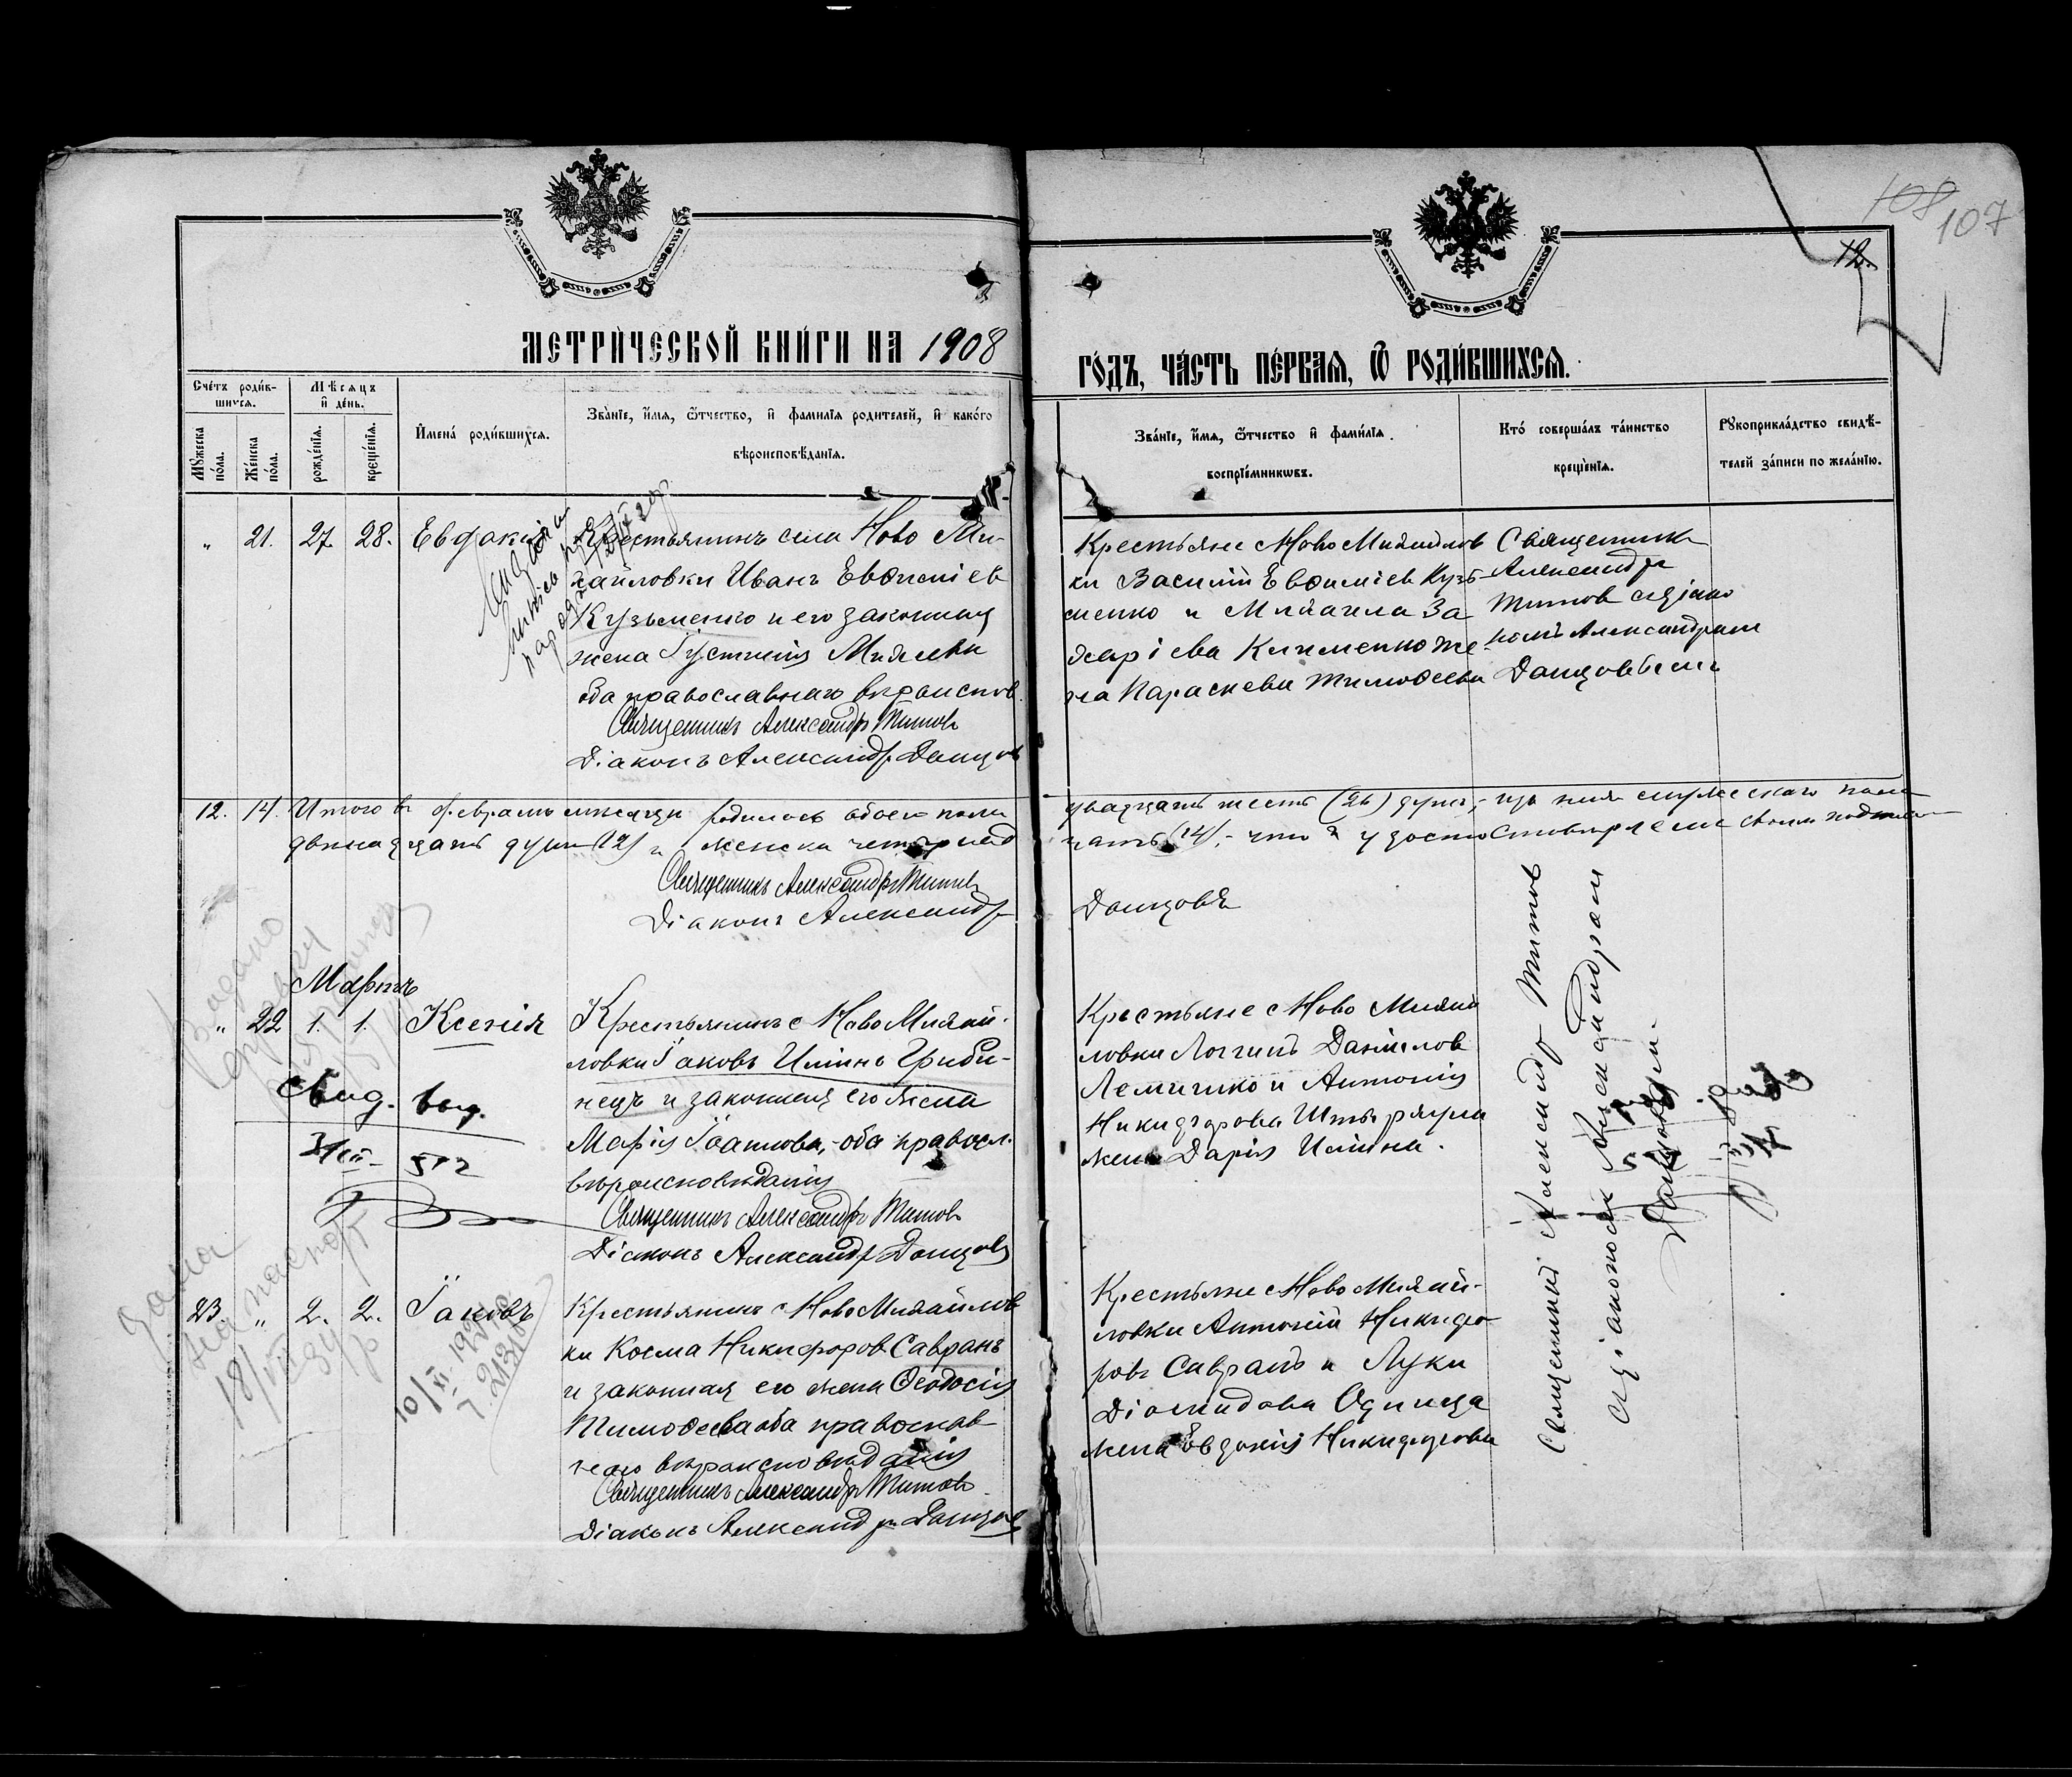 108
107
12.
МЕТРИЧЕСКОЙ КНИГИ НА 1908
ГОДЪ, ЧАСТЬ ПЕРВАЯ, Ѿ РОДИВШИХСЯ.
Счетъ родившихся.
Мужеска пола.
Женска пола.
Мѣсяцъ и день.
рожденія.
крещенія.
Имена родившихся.
Званіе, имя, ѿтчество, и фамилія родителей, и какого
вѣроисповѣданія.
Званіе, имя, ѿтчество и фамилія
воспріемниковъ.
Кто совершалъ таинство
крещенія.
Рукоприкладство свидѣ-
телей записи по желанію.
" 21. 27. 28. Евдокія
Крестьянинъ села Ново Ми-
хайловки Иванъ Евѳиміев
Кузьменко и его законная
жена Іустинія
оба православнаго вѣроиспов.
Священникъ Александръ Титовъ
Діаконъ Александръ Донцовъ
Крестьяне с Ново Михайлов
ки Василій Евѳиміев Кузь-
менко и Михаила За
харіева Клименко же-
на Параскева Тимоѳеева
Священникъ
Александръ
Титов с діако
номъ Александром
Донцовымъ
12. 14. Итого въ февралѣ мѣсяцѣ родилось обоего пола
двадцать шесть (26) душъ, изъ нихъ мужескаго пола
двѣнадцать душъ (12) и женска четырнад
цать (14), что и удостовѣряемъ своимъ подписомъ
Священникъ Александръ Титовъ
Діаконъ Александръ
Донцовъ
Мартъ
" 22 1. 1. Ксенія
Крестьянинъ с Ново Михай-
ловки Іаковъ Иліинъ Гриби-
нецъ и законная его жена
Марія Іоаннова, оба правосл.
вѣроисповѣданія
Священникъ Александръ Титовъ
Діаконъ Александръ Донцовъ
Крестьяне с Ново Михай
ловки Логгинъ Даніилов
и Антонія
Никифорова
жена Дарія Иліина.
Свид. выд.
512
на паспорт
23. " 2. 2. Іаковъ
Крестьянинъ с Ново Михайлов
ки Косма Никифоров Савранъ
и законная его жена Ѳеодосія
Тимоѳеева оба православ
наго вѣроисповѣданія
Священникъ Александръ Титовъ
Діаконъ Александръ Донцовъ
Крестьяне с Ново Михай-
ловки Антоній Никифо
ровъ Савранъ и Луки
Діомидова Одинца
жена Евдокія Никифорова
Священникъ Александръ Титов
с діакономъ Александром
Донцовым